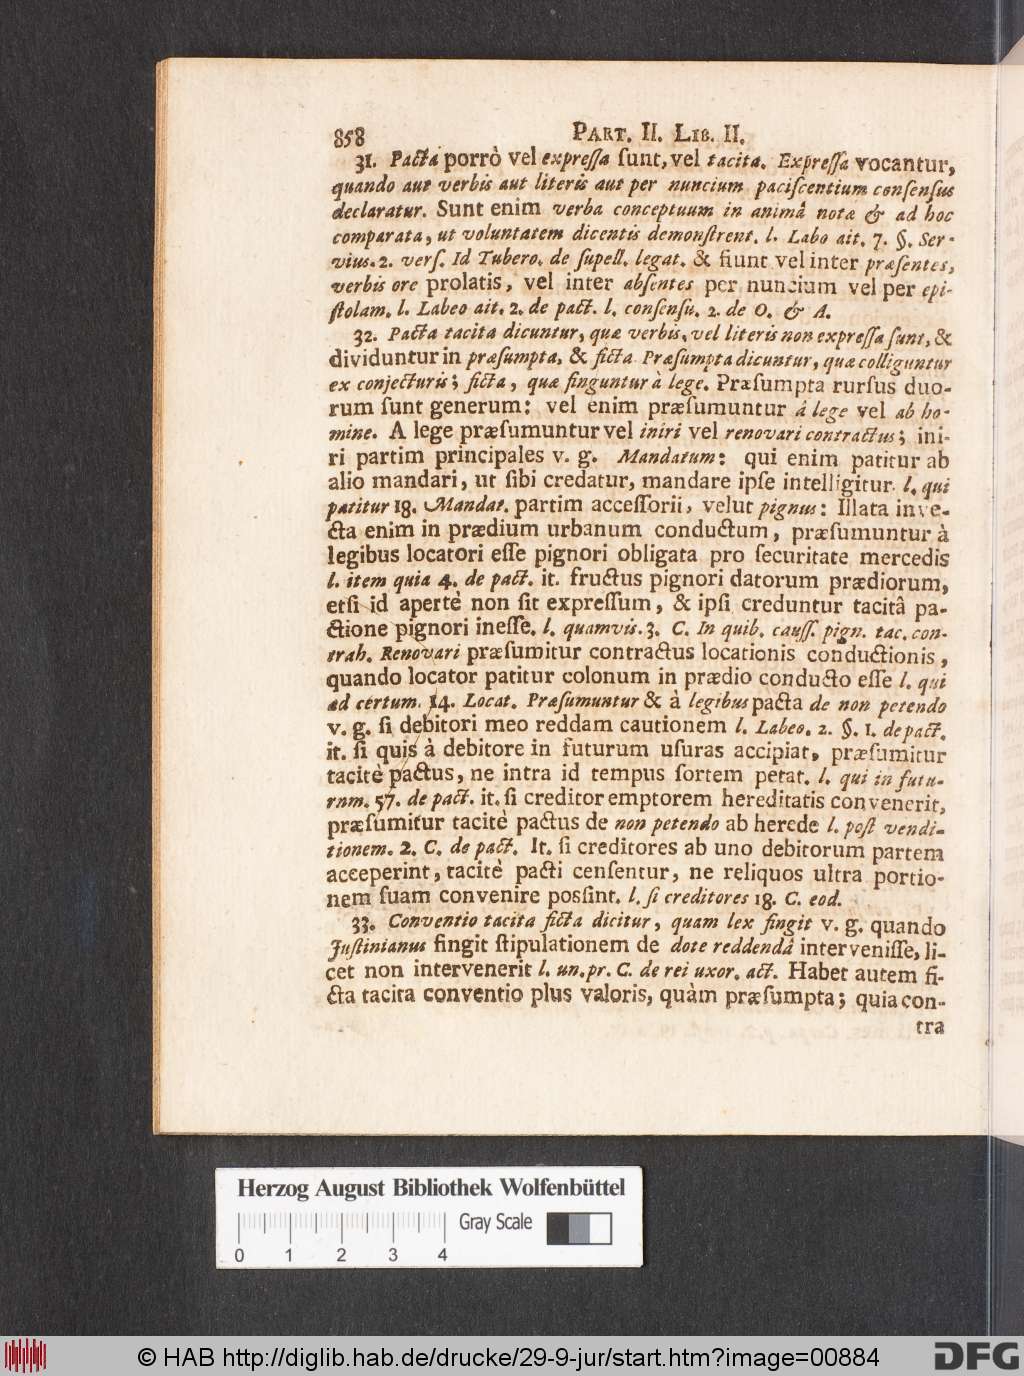 858 PART. II. LIB. II.
31. Pacta porrò vel expressa sunt, vel tacita. Expressa vocantur,
quando aut verbis aut literis aut per nuncium paciscentium consensus
declaratur. Sunt enim verba conceptuum in animâ notæ & ad hoc
comparata, ut voluntatem dicentis demonstrent. l. Labo ait. 7. §. Ser-
vius. 2. vers. Id Tubero. de supell. legat. & fiunt vel inter præsentes,
verbis ore prolatis, vel inter absentes per nuncium vel per epi-
stolam. l. Labeo ait. 2. de pact. l. consensu. 2. de O. & A.
32. Pacta tacita dicuntur, quæ verbis, vel literis non expressa sunt, &
dividuntur in præsumpta, & ficta Præsumpta dicuntur, quæ colliguntur
ex conjecturis; ficta, quæ finguntur à lege. Præsumpta rursus duo-
rum sunt generum: vel enim præsumuntur á lege vel ab ho-
mine. A lege præsumuntur vel iniri vel renovari contractus; ini-
ri partim principales v. g. Mandatum: qui enim patitur ab
alio mandari, ut sibi credatur, mandare ipse intelligitur. l. qui
patitur 18. Mandat. partim accessorii, velut pignus: Illata inve-
cta enim in prædium urbanum conductum, præsumuntur à
legibus locatori esse pignori obligata pro securitate mercedis
l. item quia 4. de pact. it. fructus pignori datorum prædiorum,
etsi id apertè non sit expressum, & ipsi creduntur tacitâ pa-
ctione pignori inesse. l. quamvis. 3. C. In quib. causs. pign. tac. con-
trah. Renovari præsumitur contractus locationis conductionis,
quando locator patitur colonum in prædio conducto esse l. qui
ad certum. 14. Locat. Præsumuntur & à legibus pacta de non petendo
v. g. si debitori meo reddam cautionem l. Labeo. 2. §. 1. de pact.
it. si quis à debitore in futurum usuras accipiat, præsumitur
tacitè pactus, ne intra id tempus sortem petat. l. qui in futu-
rum. 57. de pact. it. si creditor emptorem hereditatis convenerit,
præsumitur tacitè pactus de non petendo ab herede l. post vendi-
tionem. 2. C. de pact. It. si creditores ab uno debitorum partem
acceperint, tacitè pacti censentur, ne reliquos ultra portio-
nem suam convenire possint. l. si creditores 18. C. eod.
33. Conventio tacita ficta dicitur, quam lex fingit v. g. quando
Justinianus fingit stipulationem de dote reddendâ intervenisse, li-
cet non intervenerit l. un. pr. C. de rei uxor. act. Habet autem fi-
cta tacita conventio plus valoris, quàm præsumpta; quia con-
tra
Herzog August Bibliothek Wolfenbüttel
Gray Scale
0 1 2 3 4
© HAB http://diglib.hab.de/drucke/29-9-jur/start.htm?image=00884
DFG